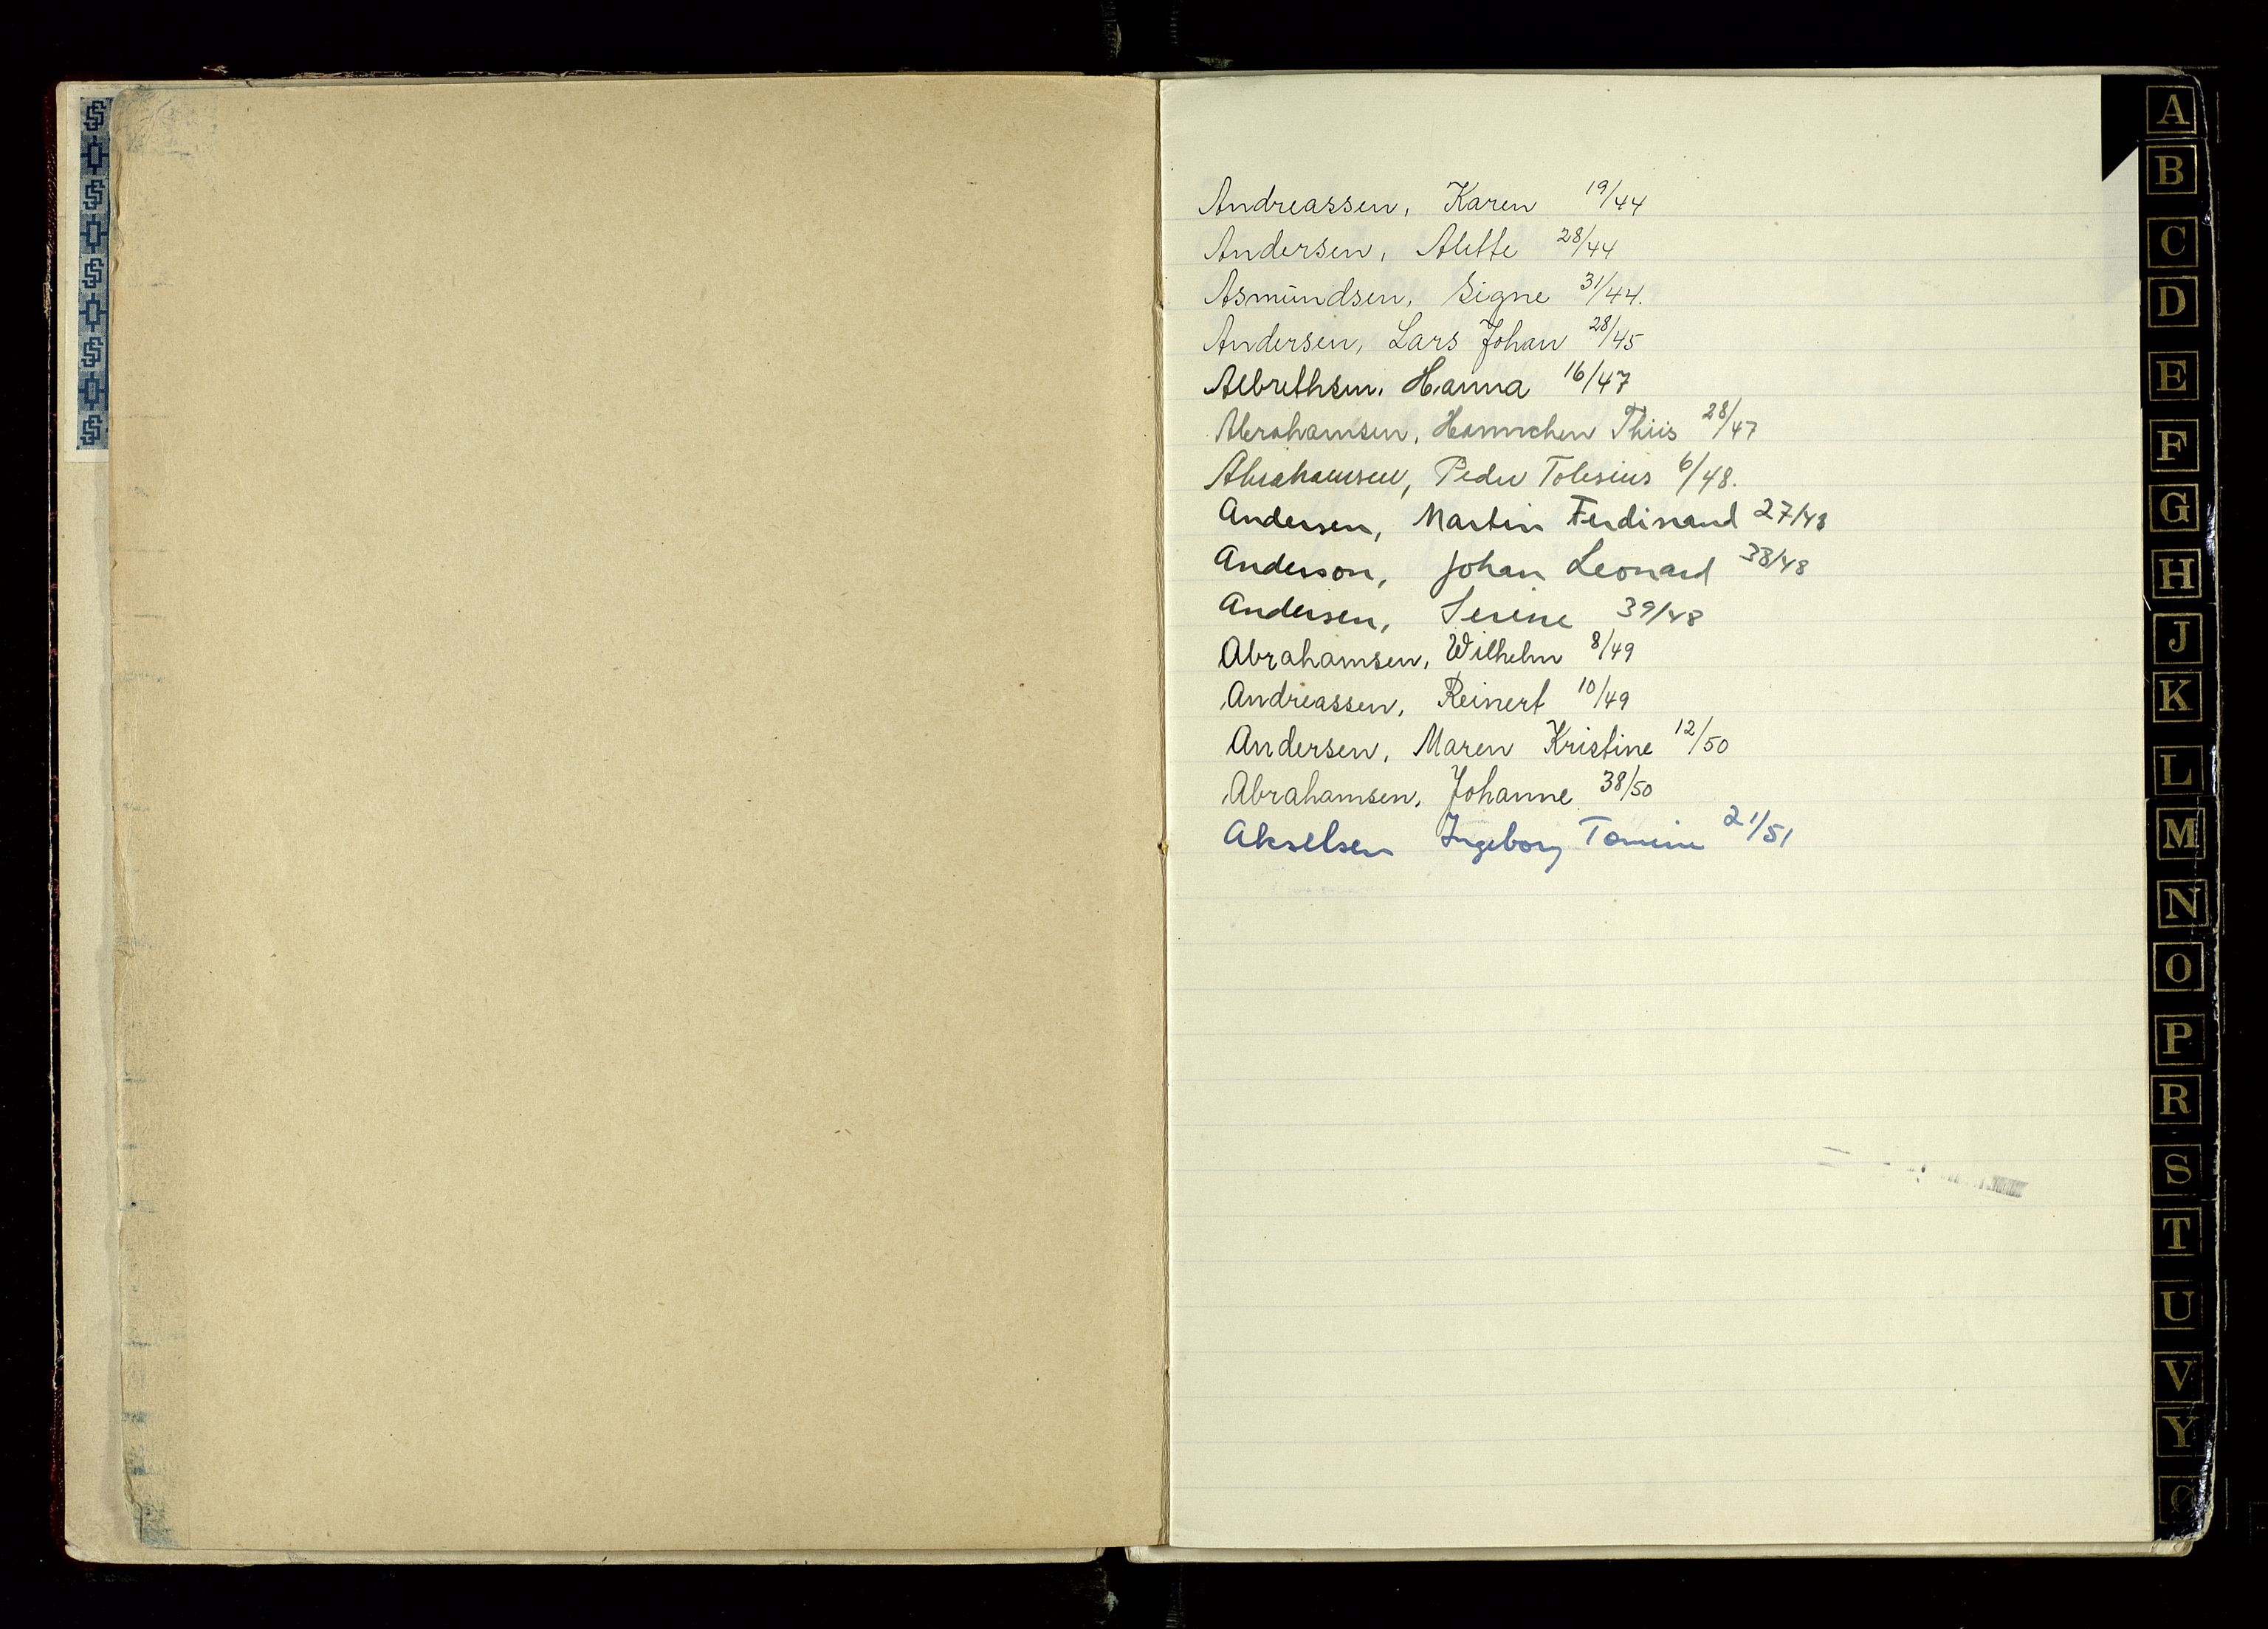 Andreassen, Karen 19/44
Andersen, Alette 28/44
Asmundsen, Signe 31/44.
Andersen, Lars Johan 28/45
Albrethsen, Hanna 16/47
Abrahamsen, Hannchen Thiis 28/47
Abrahamsen, Peder Tobesius 6/48.
Andersen, Martin Ferdinand 27/48
Andersson, Johan Leonard 38/48
Andersen, Serine 39/48
Abrahamsen, Wilhelm 8/49
Andreassen, Reinert 10/49
Andersen, Maren Kristine 12/50
Abrahamsen, Johanne 38/50
Akselsen Ingeborg Tomine 21/51
A
B
C
D
E
F
G
H
J
K
L
M
N
O
P
R
S
T
U
V
Y
Ø